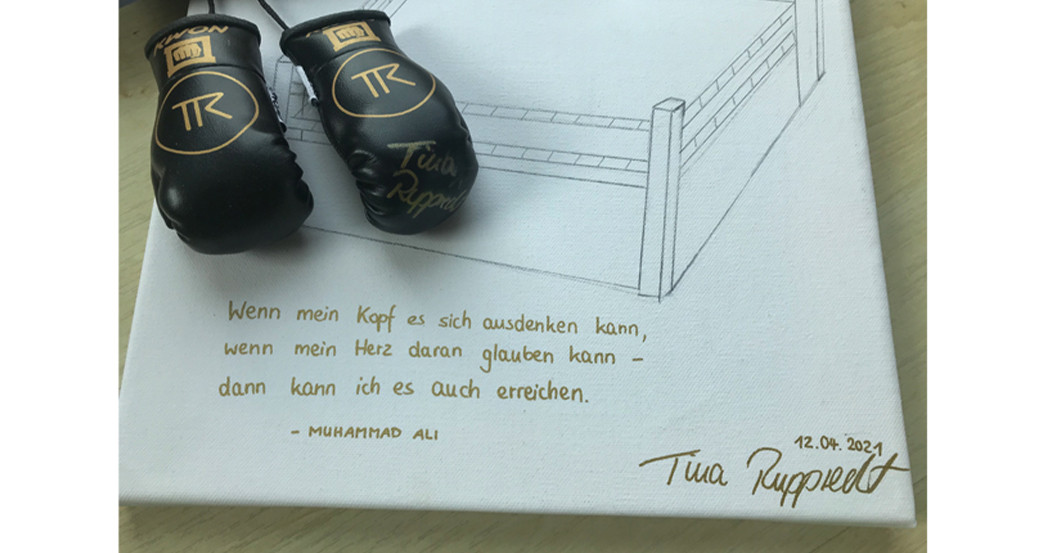 KWON
TR
TR
Tina
Rupprecht
Wenn mein Kopf es sich ausdenken kann,
wenn mein Herz daran glauben kann –
dann kann ich es auch erreichen.
– MUHAMMAD ALI
12.04.2021
Tina Rupprecht